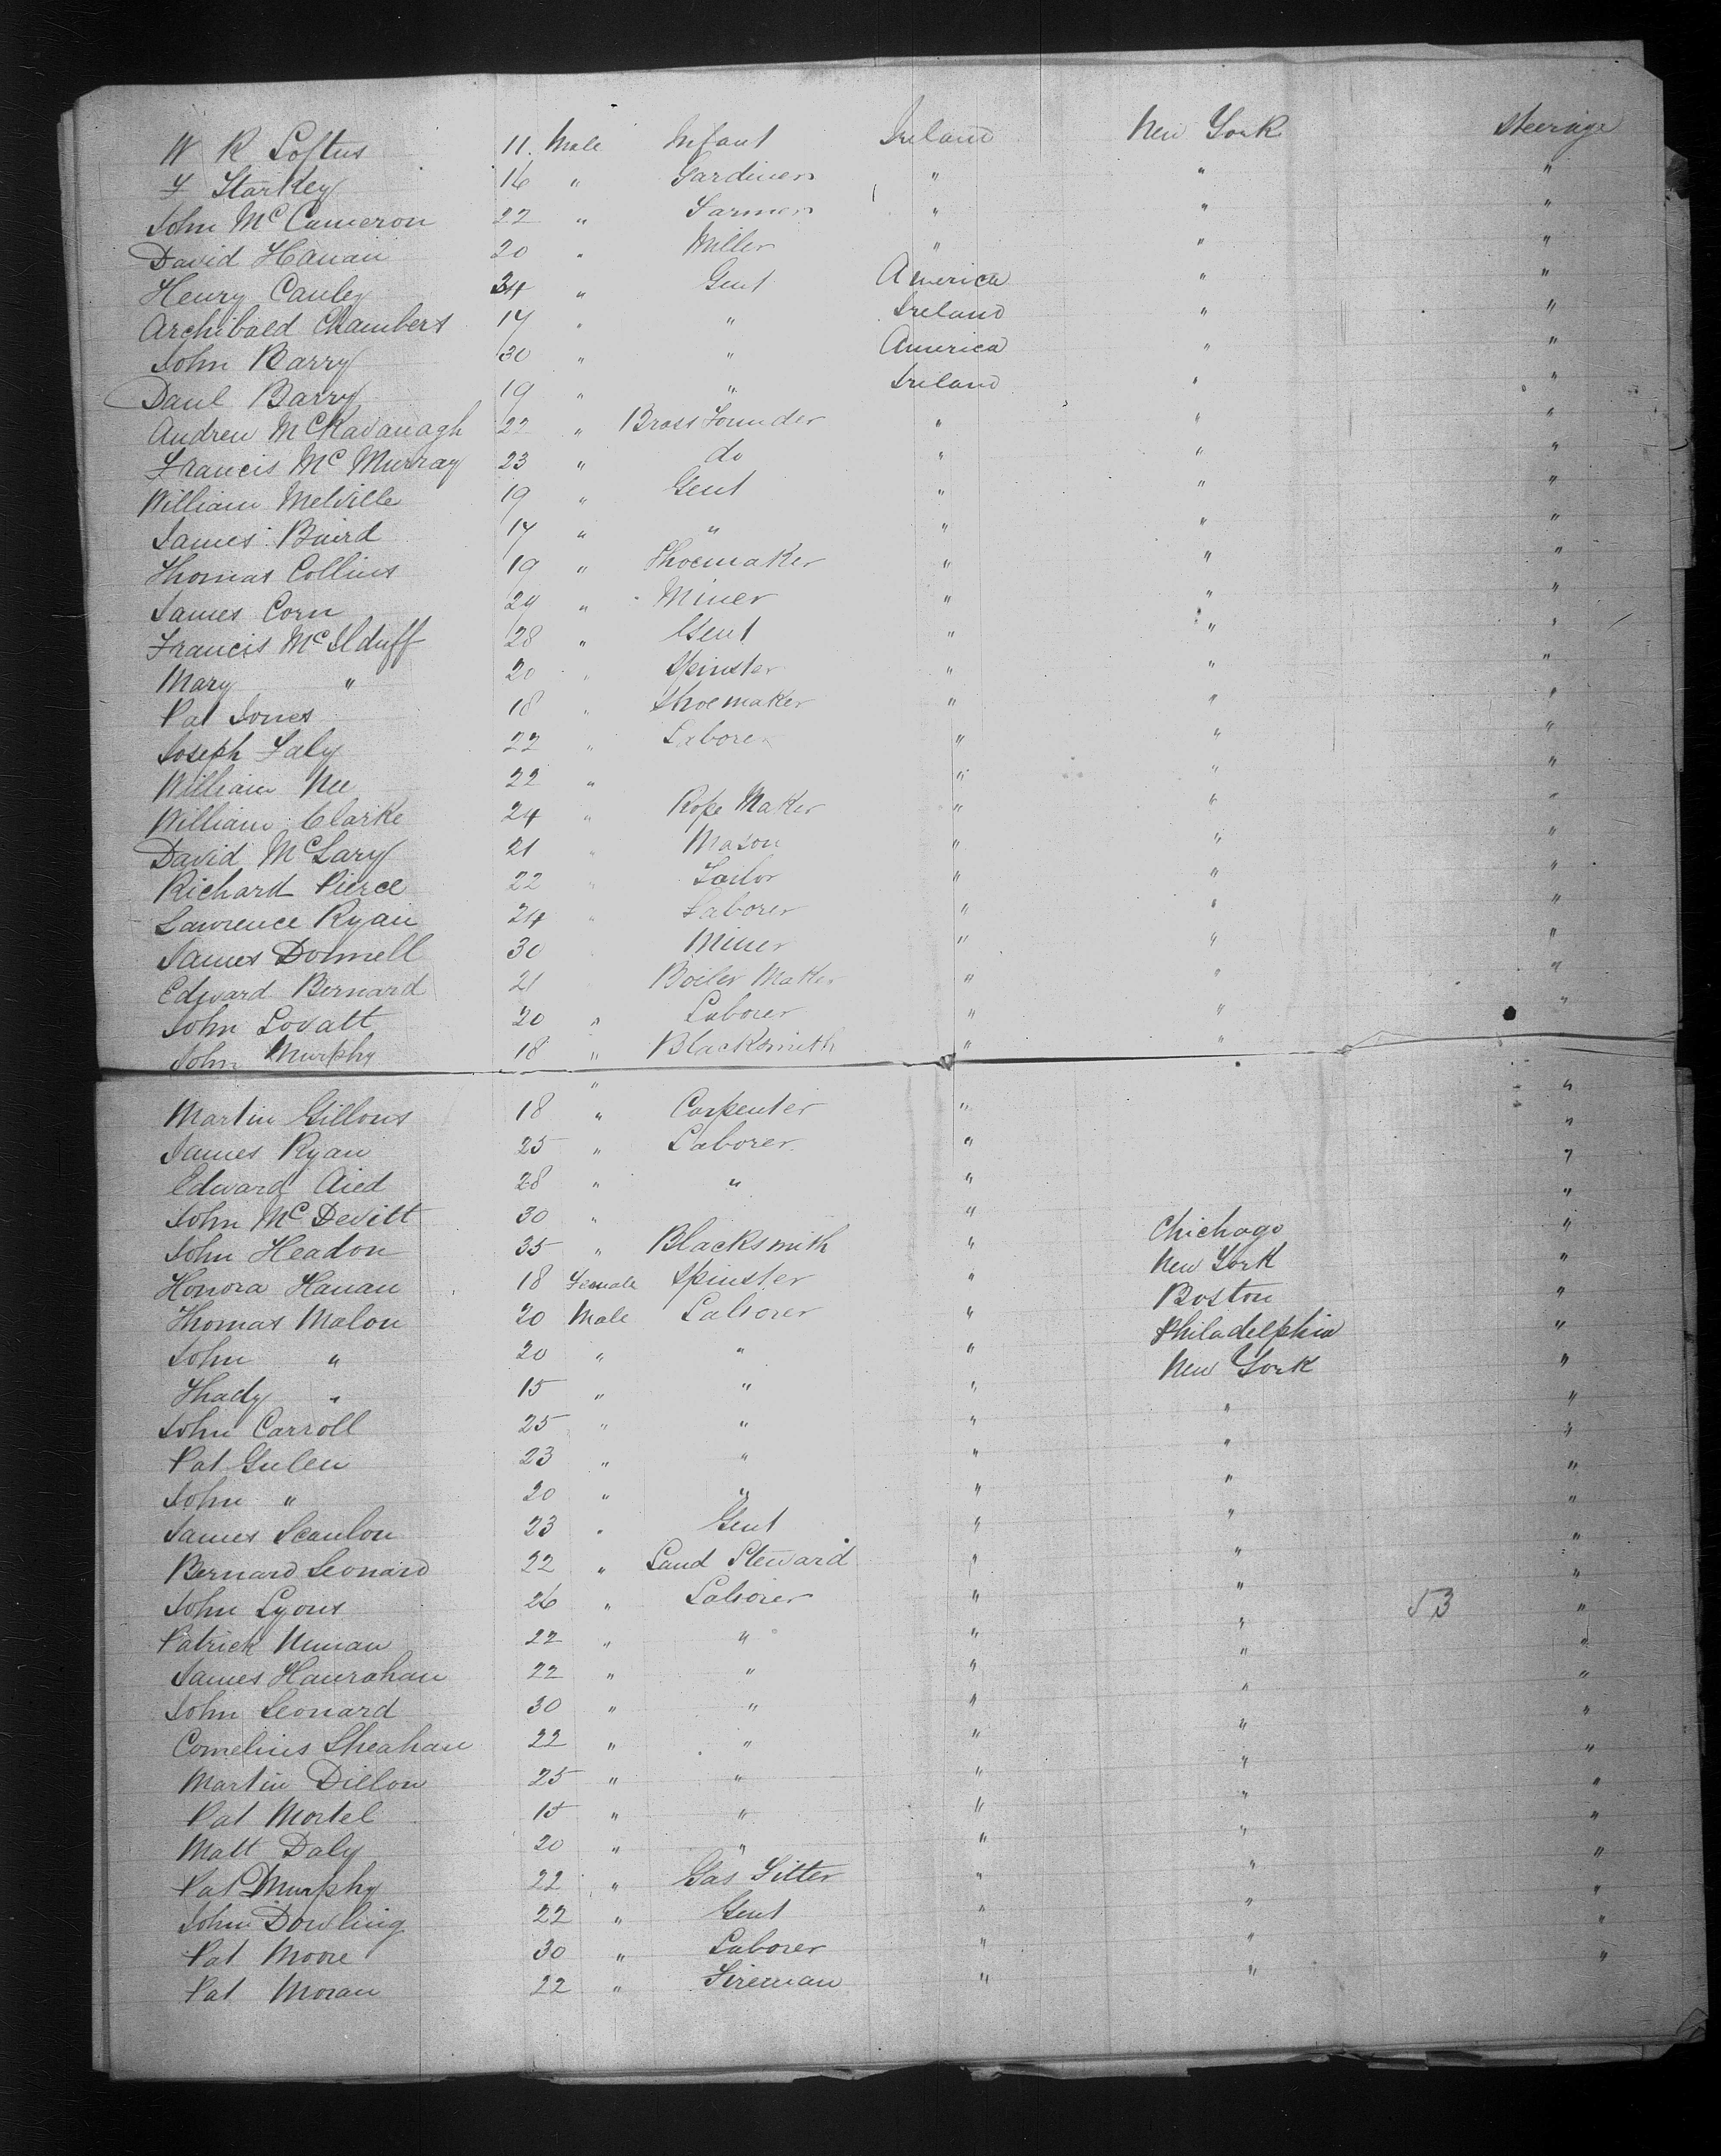 W R Loftus 11. Male Infant Ireland New York Steerage
F Starkey 16 " Gardiner " " "
John McCameron 22 " Farmer " " "
David Hanan 20 " Miller " " "
Henry Cauley 34 " Gent America " "
Archibald Chambers 17 " " Ireland " "
John Barry 30 " " America " "
Danl Barry 19 " " Ireland " "
Andrew McKavanagh 22 " Brass Founder " " "
Francis McMurray 23 " do " " "
William Melville 19 " Gent " " "
James Baird 17 " " " " "
Thomas Collins 19 " Shoemaker " " "
James Corn 24 " Miner " " "
Francis McIlduff 28 " Gent " " "
Mary " 20 " Spinster " " "
Pat Jones 18 " Shoemaker " " "
Joseph Faly 22 " Laborer " " "
William Nee 22 " " " "
William Clarke 24 " Rope Maker " " "
David McLary 21 " Mason " " "
Richard Pierce 22 " Tailor " " "
Lawrence Ryan 24 " Laborer " " "
James Donnell 30 Miner " " "
Edward Bernard 21 Boiler Maker " " "
John Lovatt 20 " Laborer " " "
John Murphy 18 " Blacksmith " "
" "
Martin Gillons 18 " Carpenter " "
James Ryan 25 " Laborer. " "
Edward Aied 28 " " " "
John McDevitt 30 " " Chichago "
John Headon 35 " Blacksmith " New York "
Honora Hanan 18 Female Spinster " Boston "
Thomas Malon 20 Male Laborer " Philadelphia "
John " 20 " " " New York "
Thady " 15 " " " " "
John Carroll 25 " " " " "
Pat Gulen 23 " " " " "
John " 20 " " " " "
James Scanlon 23 " Gent " " "
Bernard Leonard 22 " Land Steward " " "
John Lyons 26 " Laborer " " 53 "
Patrick Nunan 22 " " " " "
James Hanrahan 22 " " " " "
John Leonard 30 " " " " "
Cornelius Sheahan 22 " " " " "
Martin Dillon 25 " " " " "
Pat Mortel 15 " " " " "
Matt Daly 20 " " " " "
Pat Murphy 22 " Gas Fitter " " "
John Dowling 22 " Gent " " "
Pat Moore 30 " Laborer " " "
Pat Moran 22 " Fireman " "